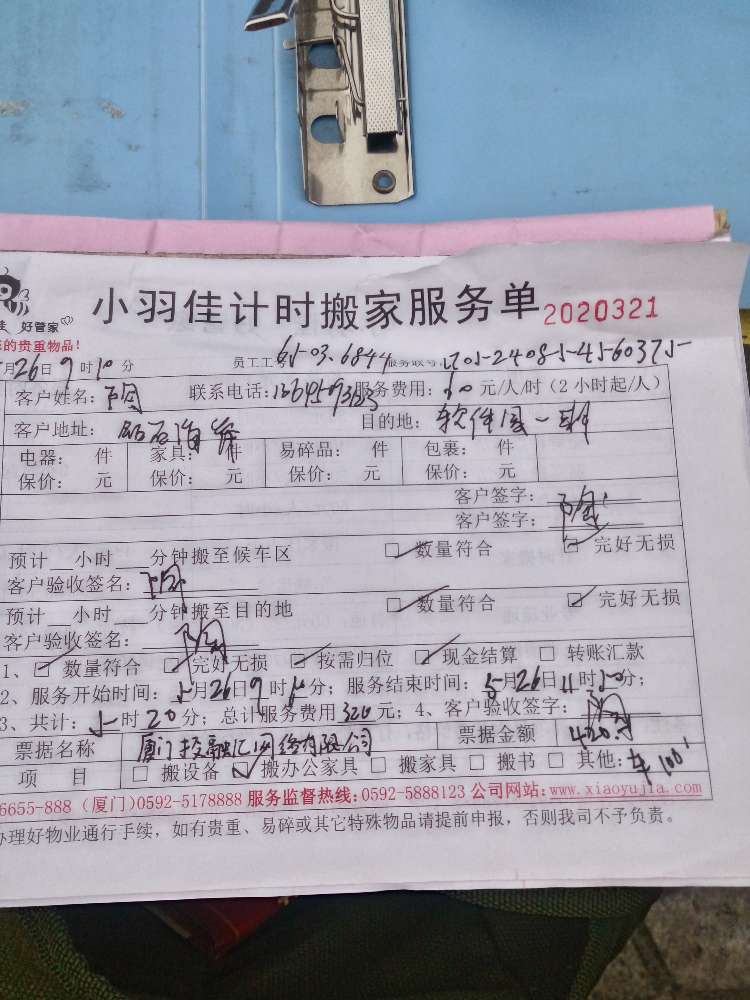 好管家
小羽佳计时搬家服务单 2020321
的贵重物品!
月26日9时10分 员工工号 服务联号:
客户姓名: 联系电话: 服务费用: 元/人/时(2小时起/人)
客户地址: 目的地:软件园一期
电器: 件 家具: 件 易碎品: 件 包裹: 件
保价: 元 保价: 元 保价: 元 保价: 元
客户签字:
客户签字:
预计__小时___分钟搬至候车区 ☑数量符合 ☑完好无损
客户验收签名:
预计__小时___分钟搬至目的地 ☑数量符合 ☑完好无损
客户验收签名:
1、☑数量符合 ☑完好无损 ☑按需归位 ☑现金结算 □转账汇款
2、服务开始时间:5月26日9时10分; 服务结束时间:5月26日11时50分;
3、共计:5时20分; 总计服务费用320元; 4、客户验收签字:
票据名称 厦门投融汇网络有限公司 票据金额 420
项 目 □搬设备 ☑搬办公家具 □搬家具 □搬书 □其他:车100
6655-888 (厦门)0592-5178888 服务监督热线:0592-5888123 公司网站:www.xiaoyujia.com
办理好物业通行手续,如有贵重、易碎或其它特殊物品请提前申报,否则我司不予负责。